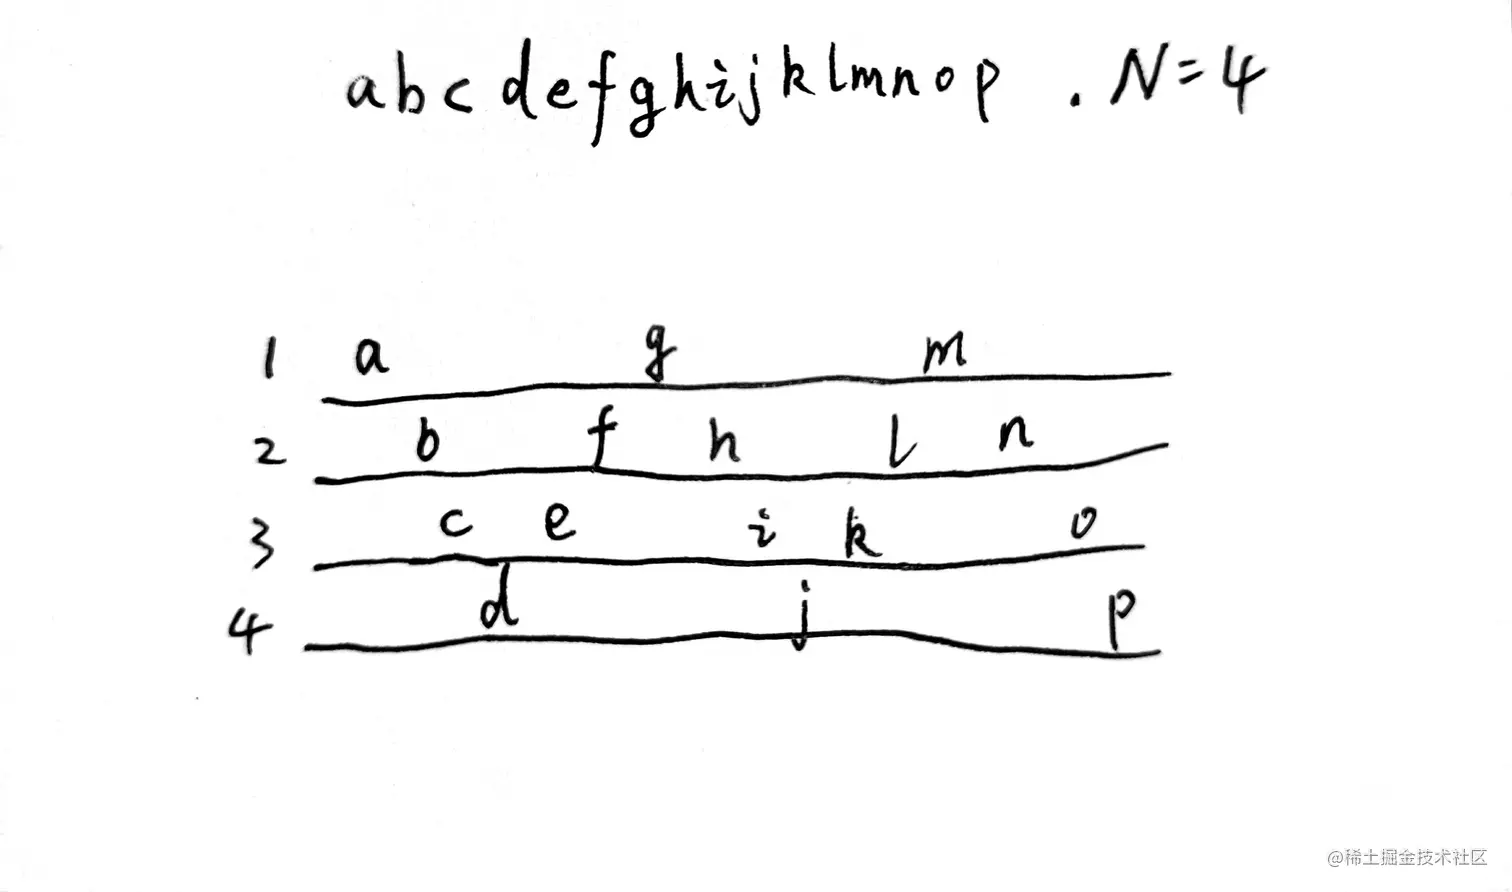 abcdefghijklmnop . N=4
1 a g m
2 b f h l n
3 c e i k o
4 d j p
@稀土掘金技术社区